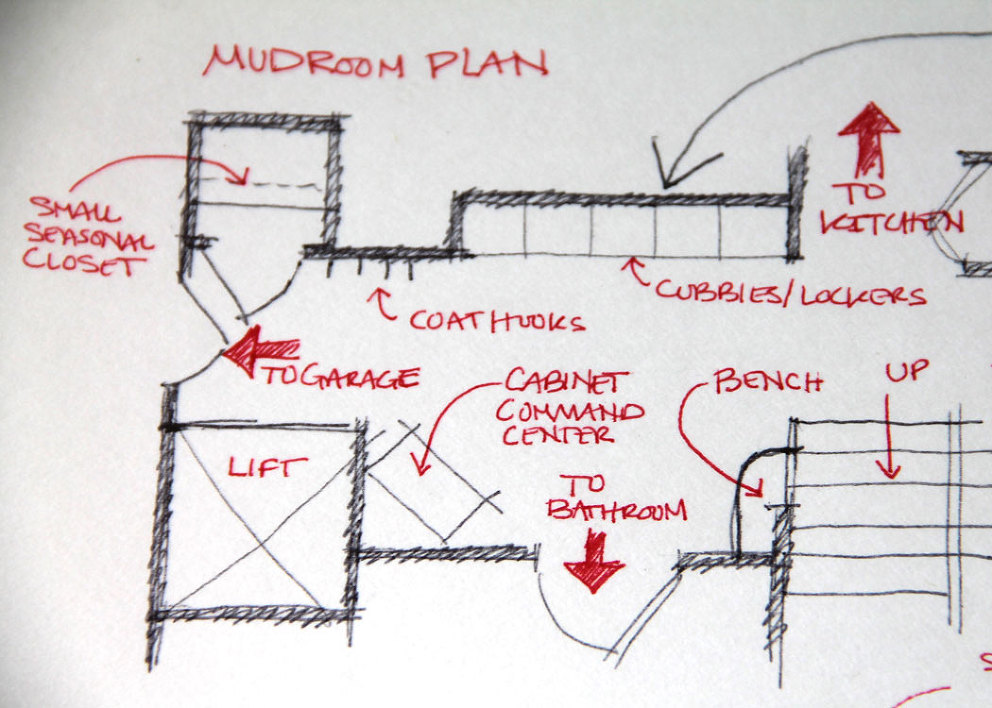 MUDROOM PLAN
TO
KITCHEN
SMALL
SEASONAL
CLOSET
CUBBIES/LOCKERS
COAT HOOKS
TO GARAGE
CABINET
COMMAND
CENTER
BENCH
UP
LIFT
TO
BATHROOM